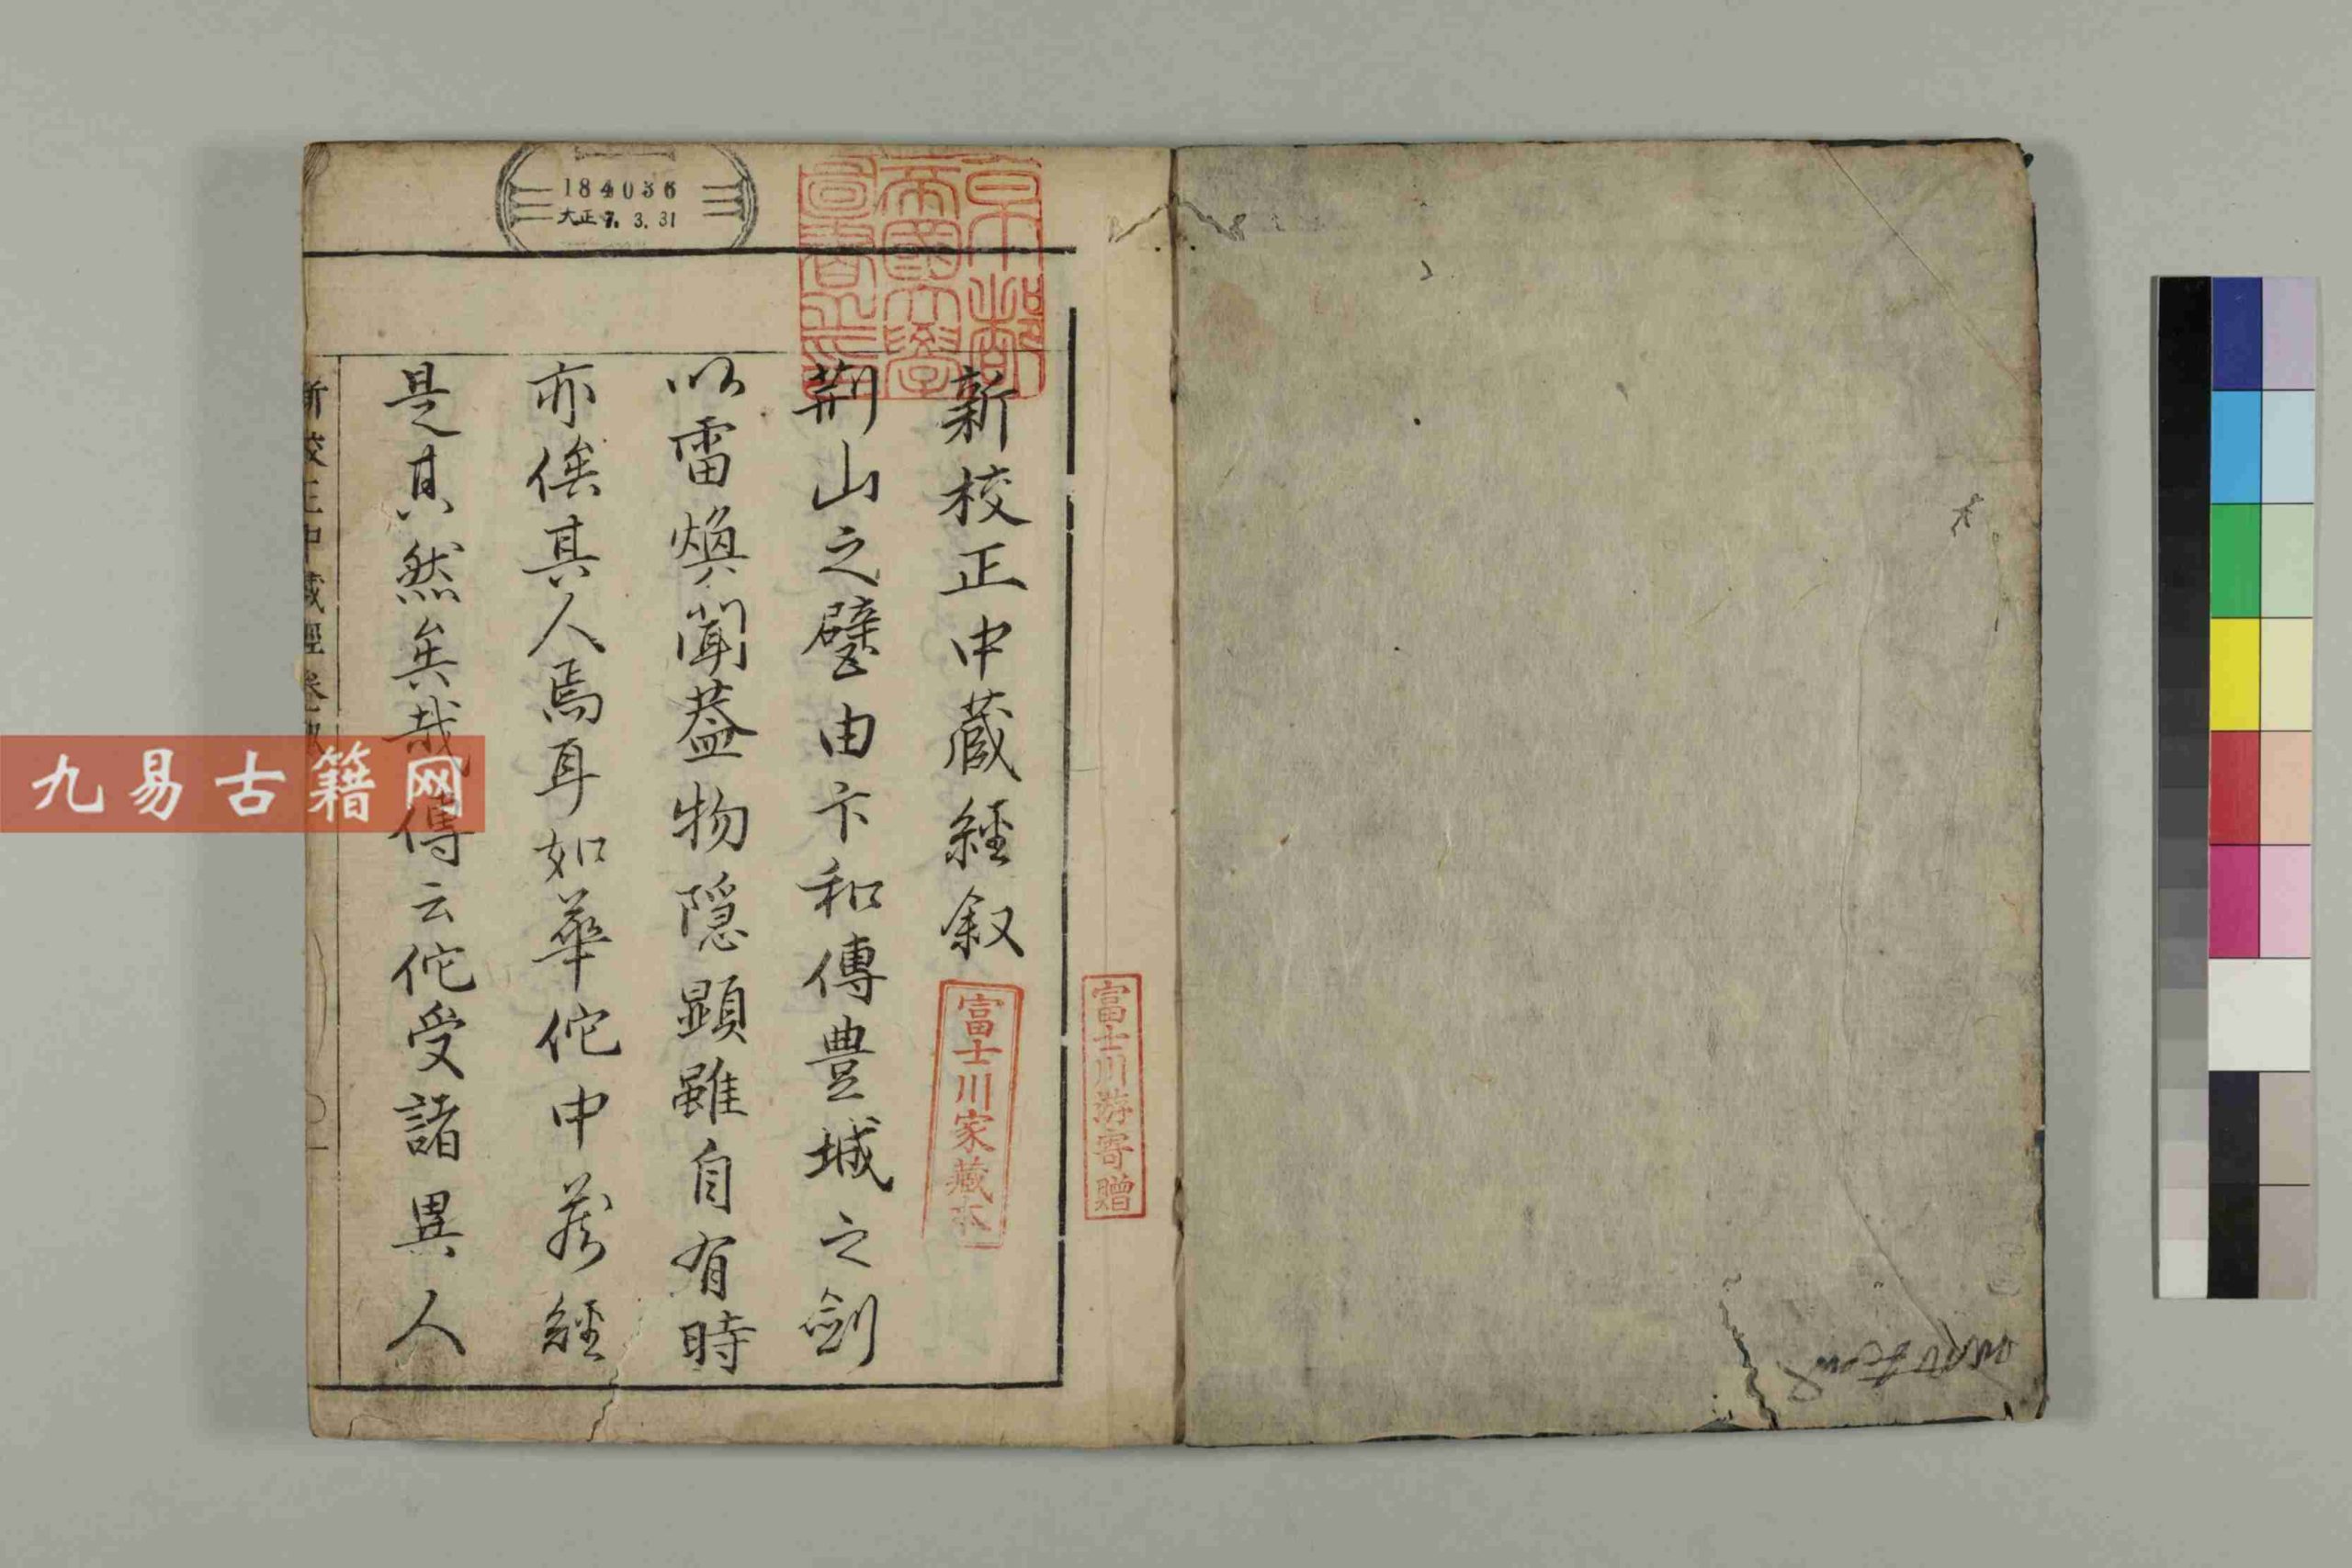 新校正中蔵經叙
荊山之璧由卞和傳豊城之劍
以雷煥聞蓋物隠顕雖自有時
亦俟其人焉耳如華佗中藏經
是其然矣哉傳云佗受諸異人
新校正中藏經卷
184036
大正7.3.31
京都
帝國大學
圖書之印
富士川家藏本
富士川游寄贈
九易古籍网